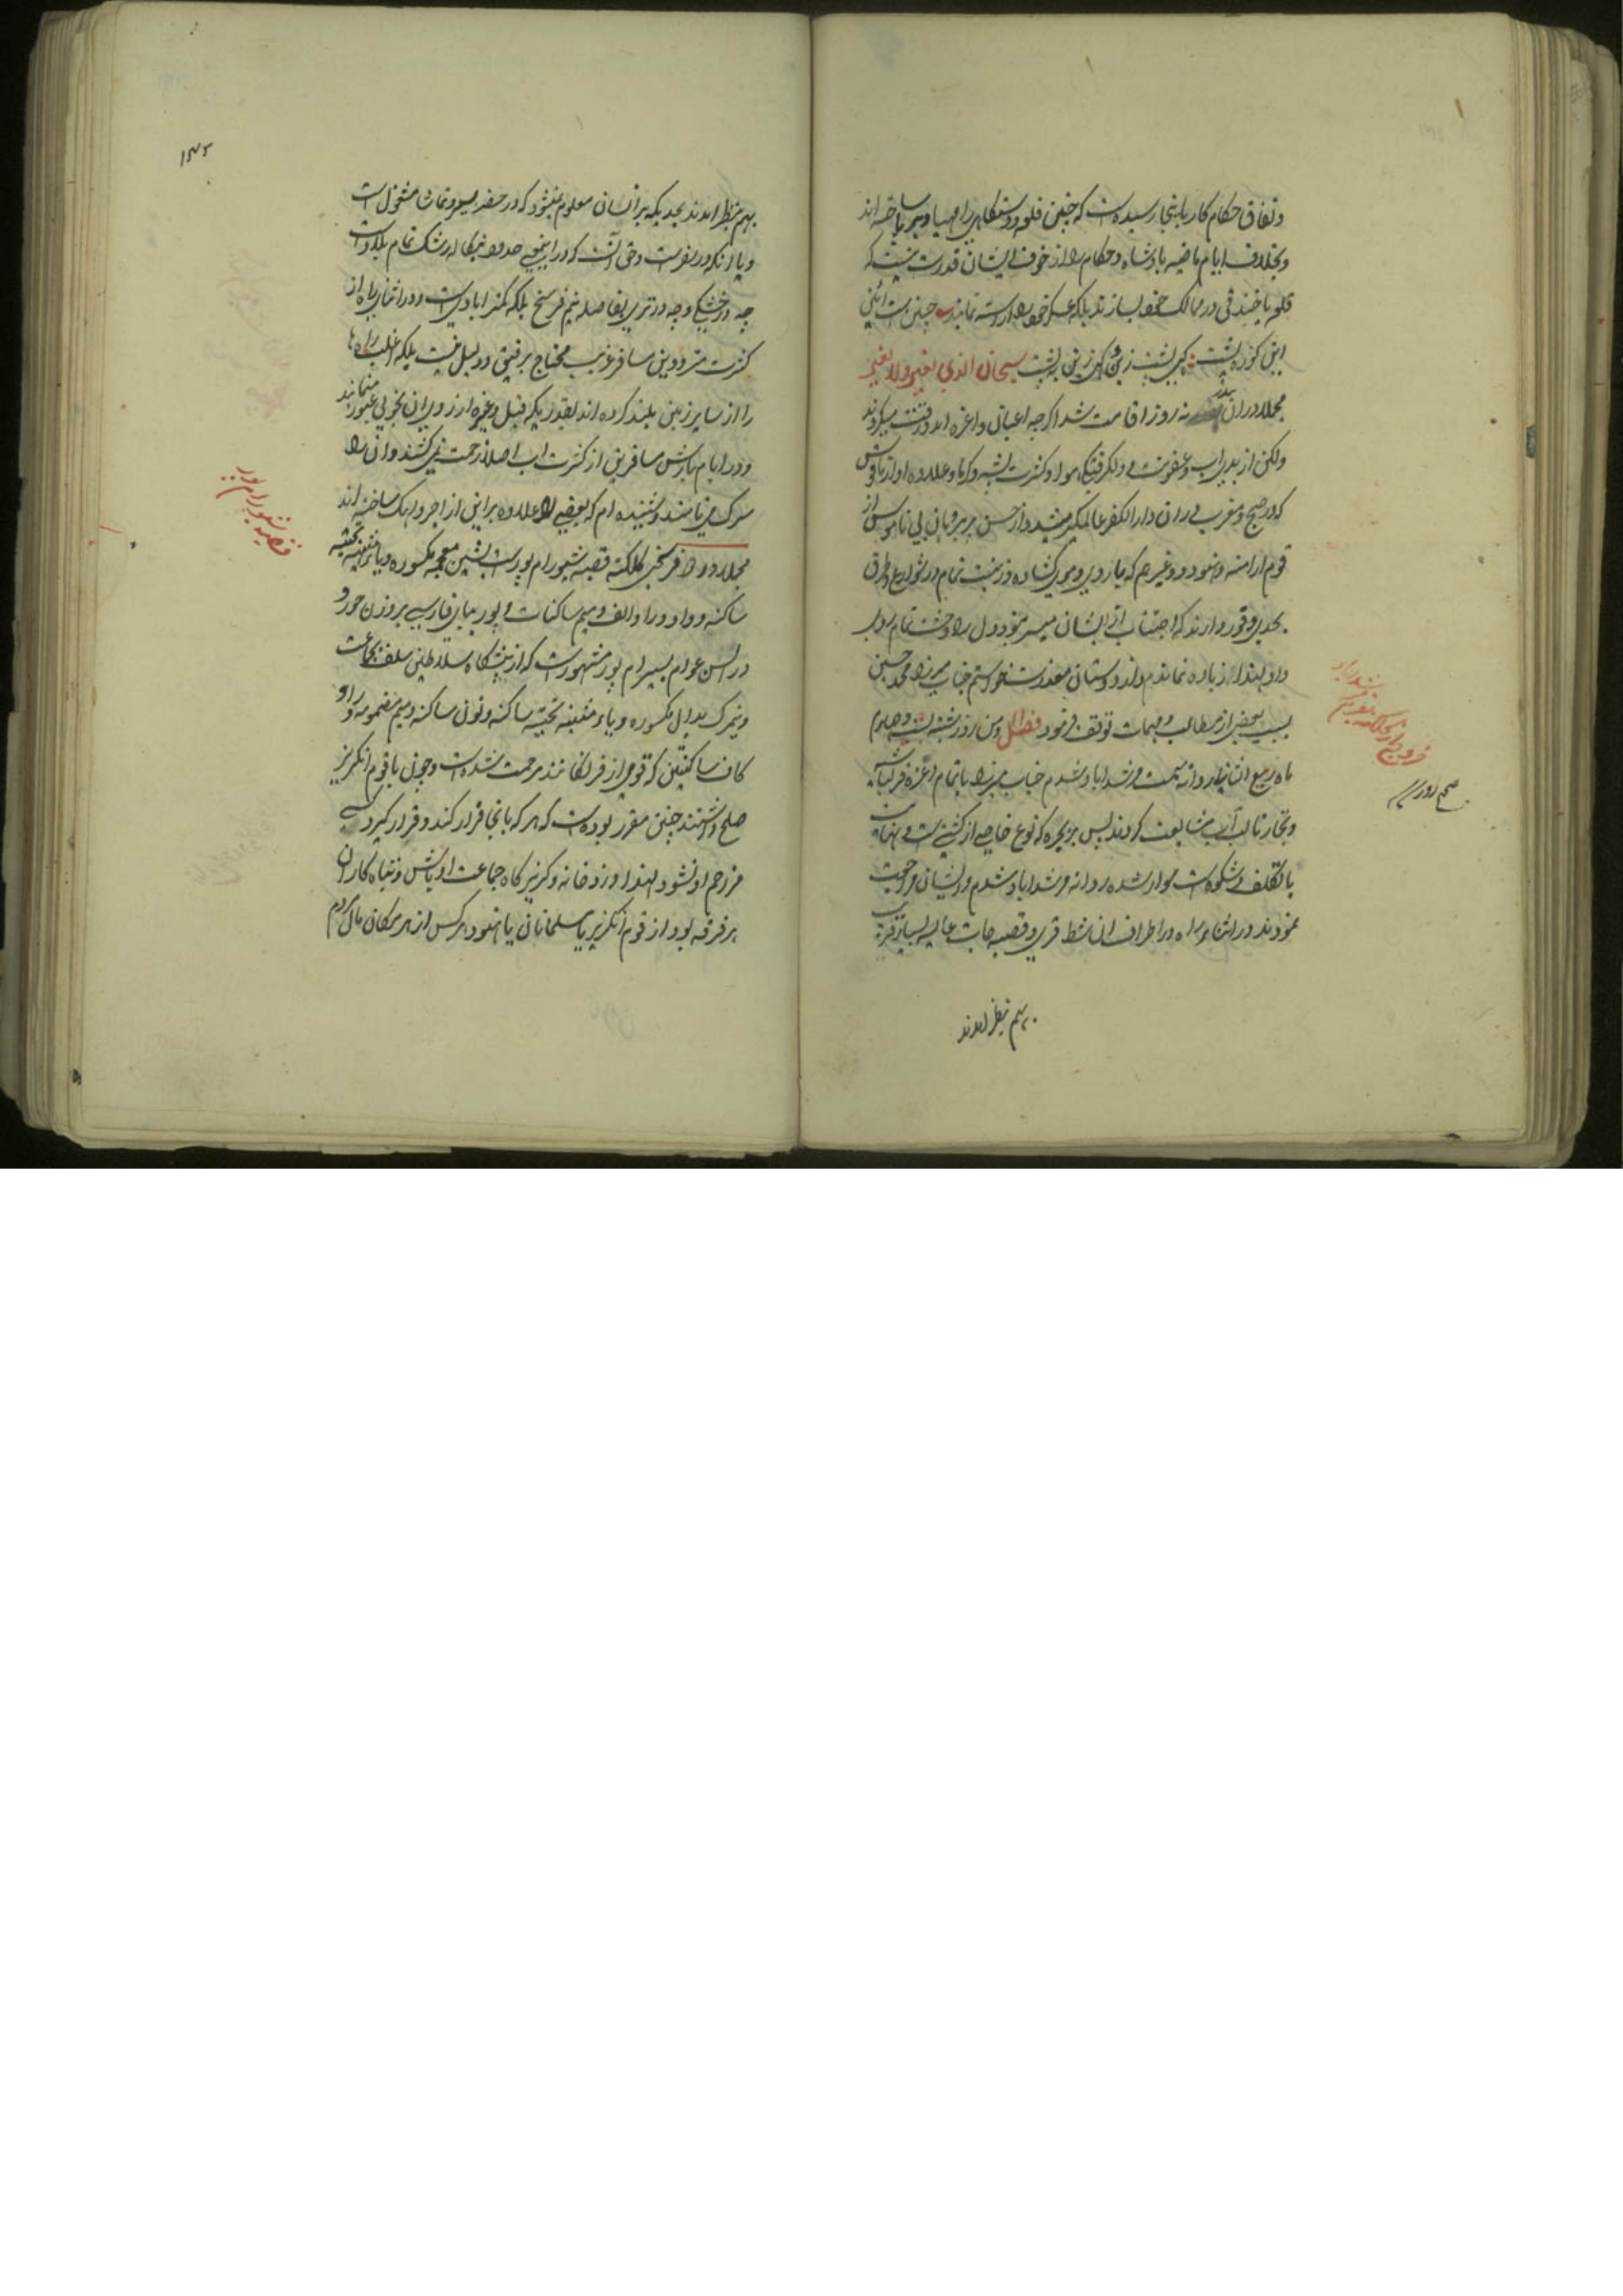 و نفاق حکام کار باینجا رسیده است که چنین قلعه و دستگاهی را مهیا و برپا ساخته اند
و بخلاف ایام ماضیه پادشاه و حکام را از خوف ایشان قدرت نیست که
قلعه یا خندقی در ممالک خود بسازند بلکه عسکر خود را آراسته نمایند چنین است آئین
این کوژ پشت کهی پشت زین و کهی زین به پشت سبحان الذی یغیر ولا یتغیر
مجملا در آن بندر نه روز اقامت شد اگرچه اعیان و اعزه آمد و رفت میکردند
ولکن از بدی آب و عفونت و دلگرفتگی هوا و کثرت پشه و گرما و علاوه آواز ناقوس
که در صبح و مغرب در آن دار الکفر عالمگیر میشد و از حسن پریرویان بی ناموس از
قوم ارامنه و هنود و غیرهم که با روی و موی گشاده و زینت تمام در شوارع و طرق
بحدی وفور دارند که اجتناب از ایشان میسر نبود و دل را وحشت تمام روی
داد لهذا زیاده نماندم و از دوستان معذرت خواستم جناب میرزا محمد حسین
بسبب بعضی از مطالب و مهمات توقف فرمود فصل و من روز شنبه بیست و چهارم
ماه ربیع الثانی روانه سمت مرشدآباد شدم جناب میرزا با تمام اعزه قزلباش
و تجار تا لب آب مشایعت کردند پس بر بجره که نوع خاصی از کشتی است و بنهایت
با تکلف و شکوه است سوار شده روانه مرشداباد شدم و ایشان مراجعت
نمودند در اثناء راه در اطراف آن شط قری و قصبه جات عالیه بسیار قریب
بهم بنظر آمدند
مرشداباد
صح روز
۱۳۲
بهم بنظر آمدند بحدیکه بر انسان معلوم نمیشود که در حضر بسیر و تماشا مشغول است
و یا آنکه در سفر است و حق آنست که در اینمعنی حدود بنگاله رشک تمام بلاد است
چه در خشکی و چه در تری بفاصله نیم فرسخ بلکه کمتر آبادیست و در اثنای راه از
کثرت مترددین مسافر غریب محتاج برفیق و دلیل نیست بلکه اغلب راه ها
را از سایر زمین بلند کرده اند بقدریکه فیل و غیره از زیر آن بخوبی عبور نمایند
و در ایام بارش مسافرین از کثرت آب اصلا زحمت نمی کشند و آن را
سرک می نامند و شنیده ام که بعضی را علاوه بر این از آجر و آهک ساخته اند
مجملا در دو فرسخی کلکته قصبه شیورام پور است بشین معجمه مکسوره و یا مثناة تحتیه
ساکنه و واو و را و الف و میم ساکنات و پور ببای فارسی بر وزن حور و
در السن عوام بسیرام پور مشهور است که از پیشگاه سلاطین سلف بجماعت
دینمرک بدال مکسوره و یاء مثناة تحتیه ساکنه و نون ساکنه و میم مضمومه و راء و
کاف ساکنتین که قومی از فرنگانند مرحمت شده است و چون با قوم انگریز
صلح داشتند چنین مقرر بوده است که هر که بآنجا فرار کند و قرار گیرد کسی
مزاحم او نشود لهذا دزدخانه و گریزگاه جماعت اوباش و تباه کاران
هر فرقه بود از قوم انگریز یا مسلمانان یا هنود هر کس از هر مکان مال مردم
قصبه شیورام پور